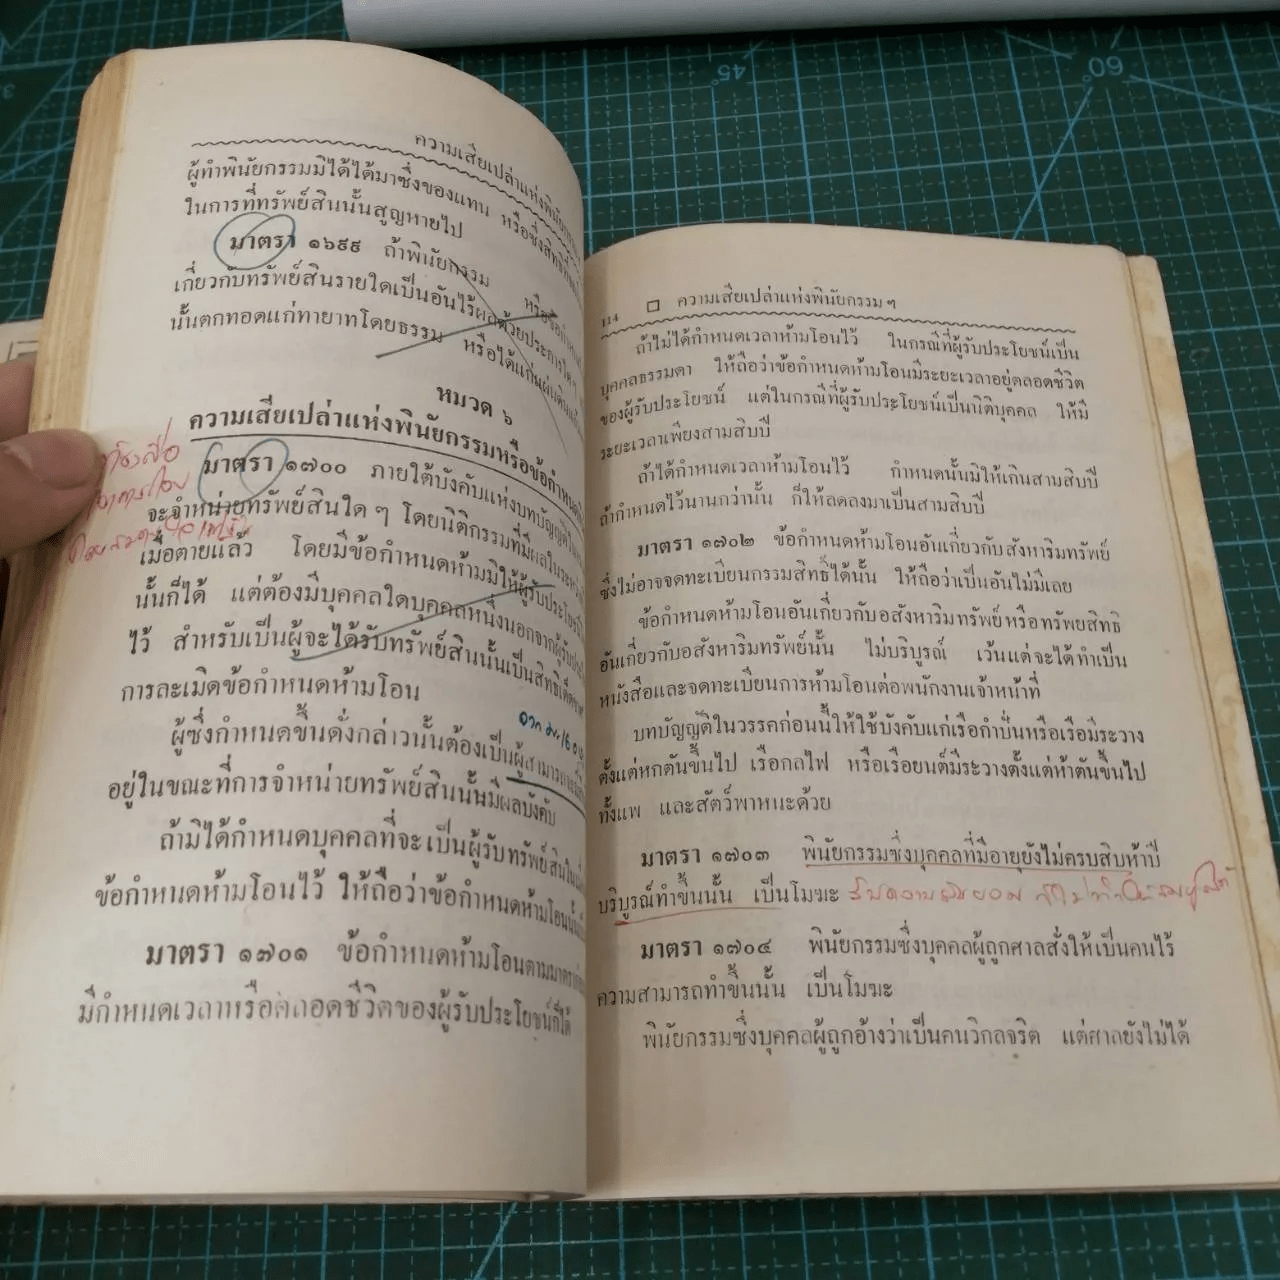 ความเสียเปล่าแห่งพินัยกรรม
ผู้ทำพินัยกรรมมิได้ได้มาซึ่งของแทน หรือซึ่งสิทธิที่
ในการที่ทรัพย์สินนั้นสูญหายไป
มาตรา ๑๖๙๙ ถ้าพินัยกรรม หรือข้อกำหนด
เกี่ยวกับทรัพย์สินรายใดเป็นอันไร้ผลด้วยประการใด ๆ
นั้นตกทอดแก่ทายาทโดยธรรม หรือได้แก่แผ่นดินแล้ว
หมวด ๖
ความเสียเปล่าแห่งพินัยกรรมหรือข้อกำหนด
มาตรา ๑๗๐๐ ภายใต้บังคับแห่งบทบัญญัติใน
จะจำหน่ายทรัพย์สินใด ๆ โดยนิติกรรมที่มีผลในระหว่าง
เมื่อตายแล้ว โดยมีข้อกำหนดห้ามมิให้ผู้รับประโยชน์
นั้นก็ได้ แต่ต้องมีบุคคลใดบุคคลหนึ่งนอกจากผู้รับประ
ไว้ สำหรับเป็นผู้จะได้รับทรัพย์สินนั้นเป็นสิทธิเด็ดขาด
การละเมิดข้อกำหนดห้ามโอน
ผู้ซึ่งกำหนดขึ้นดั่งกล่าวนั้นต้องเป็นผู้สามารถ
อยู่ในขณะที่การจำหน่ายทรัพย์สินนั้นมีผลบังคับ
ถ้ามิได้กำหนดบุคคลที่จะเป็นผู้รับทรัพย์สินใน
ข้อกำหนดห้ามโอนไว้ ให้ถือว่าข้อกำหนดห้ามโอนนั้น
มาตรา ๑๗๐๑ ข้อกำหนดห้ามโอนตามมาตรา
มีกำหนดเวลาหรือตลอดชีวิตของผู้รับประโยชน์ก็ได้
114 ความเสียเปล่าแห่งพินัยกรรม ๆ
ถ้าไม่ได้กำหนดเวลาห้ามโอนไว้ ในกรณีที่ผู้รับประโยชน์เป็น
บุคคลธรรมดา ให้ถือว่าข้อกำหนดห้ามโอนมีระยะเวลาอยู่ตลอดชีวิต
ของผู้รับประโยชน์ แต่ในกรณีที่ผู้รับประโยชน์เป็นนิติบุคคล ให้มี
ระยะเวลาเพียงสามสิบปี
ถ้าได้กำหนดเวลาห้ามโอนไว้ กำหนดนั้นมิให้เกินสามสิบปี
ถ้ากำหนดไว้นานกว่านั้น ก็ให้ลดลงมาเป็นสามสิบปี
มาตรา ๑๗๐๒ ข้อกำหนดห้ามโอนอันเกี่ยวกับสังหาริมทรัพย์
ซึ่งไม่อาจจดทะเบียนกรรมสิทธิ์ได้นั้น ให้ถือว่าเป็นอันไม่มีเลย
ข้อกำหนดห้ามโอนอันเกี่ยวกับอสังหาริมทรัพย์หรือทรัพยสิทธิ
อันเกี่ยวกับอสังหาริมทรัพย์นั้น ไม่บริบูรณ์ เว้นแต่จะได้ทำเป็น
หนังสือและจดทะเบียนการห้ามโอนต่อพนักงานเจ้าหน้าที่
บทบัญญัติในวรรคก่อนนี้ให้ใช้บังคับแก่เรือกำปั่นหรือเรือมีระวาง
ตั้งแต่หกตันขึ้นไป เรือกลไฟ หรือเรือยนต์มีระวางตั้งแต่ห้าตันขึ้นไป
ทั้งแพ และสัตว์พาหนะด้วย
มาตรา ๑๗๐๓ พินัยกรรมซึ่งบุคคลที่มีอายุยังไม่ครบสิบห้าปี
บริบูรณ์ทำขึ้นนั้น เป็นโมฆะ
มาตรา ๑๗๐๔ พินัยกรรมซึ่งบุคคลผู้ถูกศาลสั่งให้เป็นคนไร้
ความสามารถทำขึ้นนั้น เป็นโมฆะ
พินัยกรรมซึ่งบุคคลผู้ถูกอ้างว่าเป็นคนวิกลจริต แต่ศาลยังไม่ได้